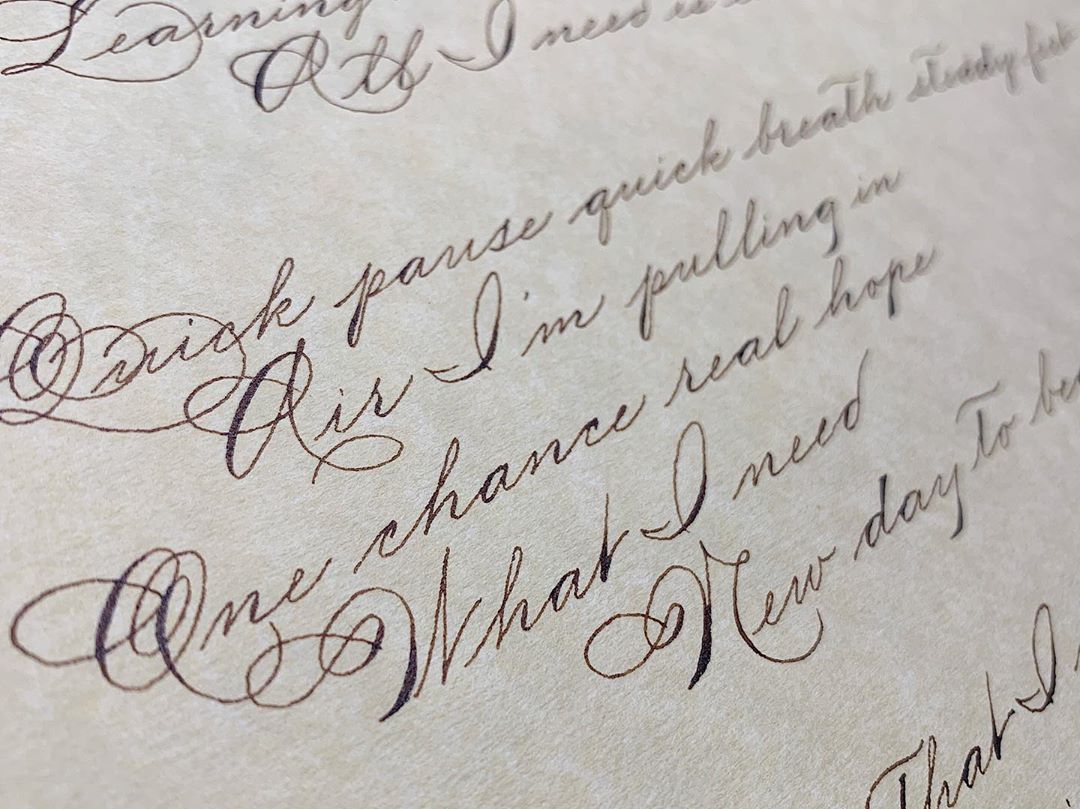 Learning
All I need is
Quick pause quick breath steady feet
Air I'm pulling in
One chance real hope
What I need
New day to be
That I